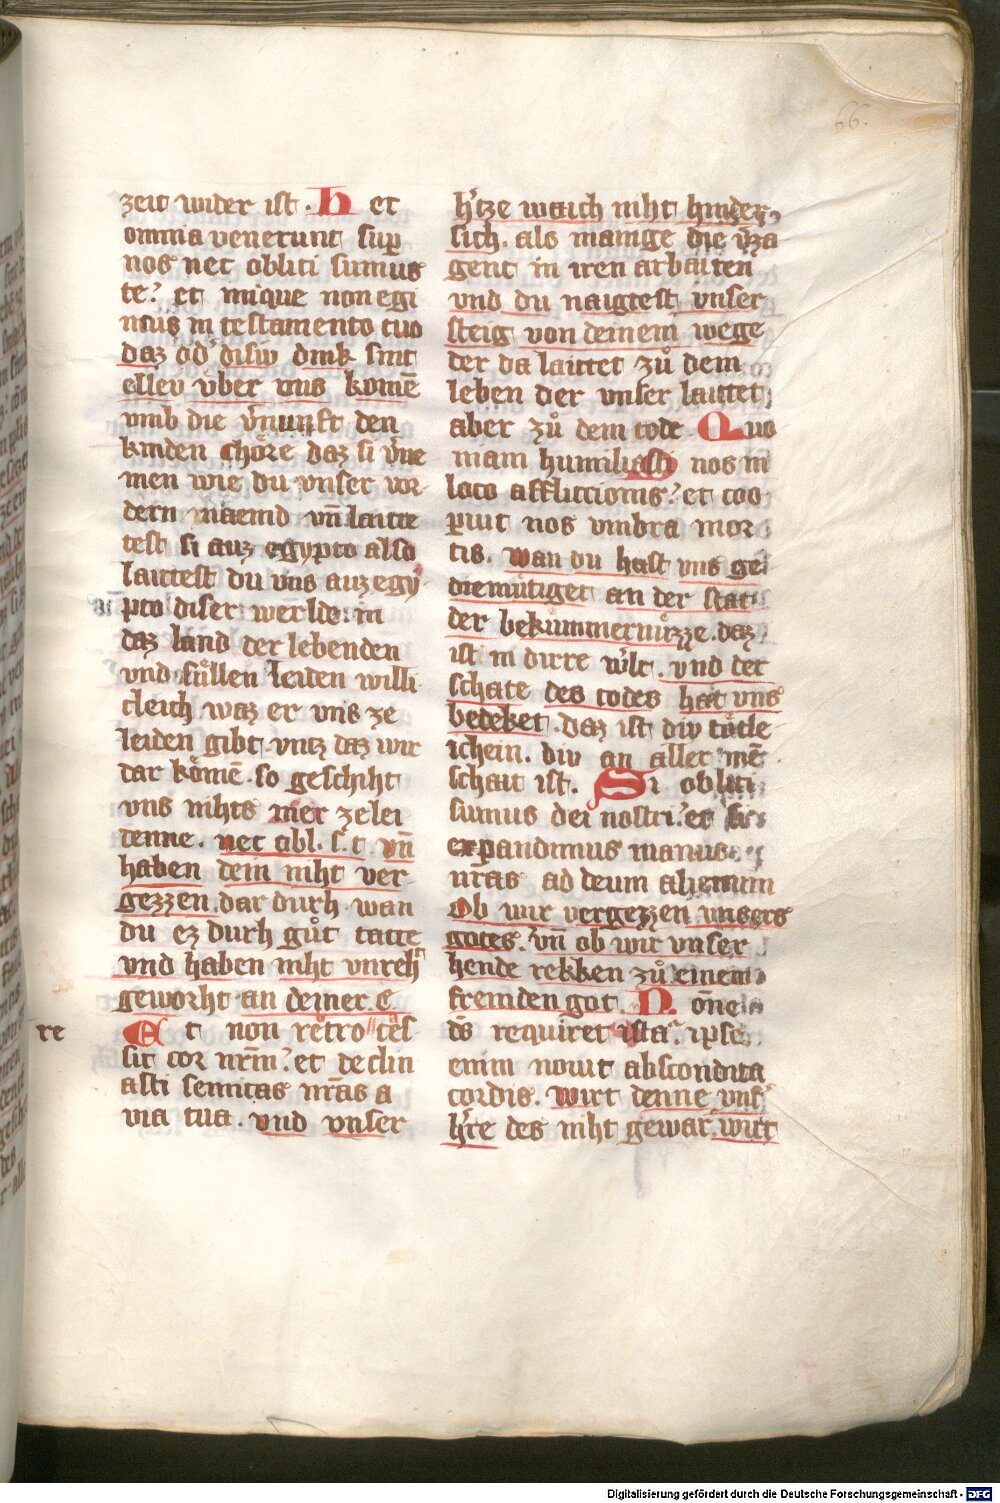 66.
zeit wider ist. H ec
omnia venerunt sup
nos nec obliti sumus
te? et inique non egi
mus in testamento tuo
daz od disiv dink sint
ellev vber vns komē
vmb die v̄nunft den
kinden chore daz si v̄ne
men wie du vnser vor
dern maemd vn̄ laitte
test si auz egypto also
laittest du vns auz egy
pto diser werlde. in
daz land der lebenden
vnd fůllen leiden willi
cleich waz er vns ze
leiden gibt. vntz daz wir
dar kömē. so geschiht
vns nihts mer ze lei
denne. nec obl. s. t. vn̄
haben dein niht ver
gezzen. dar durh wan
du ez durh gůt tatte
vnd haben niht vnreh
geworht an deiner. e.
re
E t non retro ces
sit cor nr̄m? et declin
asti semitas nr̄as a
via tua. vnd vnser
h'tze waich niht hinder
sich. als manige die v̄za
gent in iren arbaiten
vnd du naigtest vnser
steig von deinem wege
der da laittet zů dem
leben der vnser laittet
aber zů dem tode Quo
niam humiliasti nos in
loco afflictionis? et coo
pruit nos vmbra mor
tis. wan du hast vns ge
diemůtiget an der stat
der bekůmmernůzze. daz
ist in dirre w'lt. vnd der
schate des todes hat vns
bedeket. daz ist div tötle
ichein. div an aller mē
schait ist. Si obliti
sumus dei nostri? et si
expandimus manus
nr̄as ad deum alienum
Ob wir vergezzen vnsers
gotes. vn̄ ob wir vnser
hende rekken zů einem
fremden got N. ōne
ds̄ requiret ista? ipse
enim nouit abscondita
cordis. wirt denne vns'
h're des niht gewar. wirt
Digitalisierung gefördert durch die Deutsche Forschungsgemeinschaft - DFG